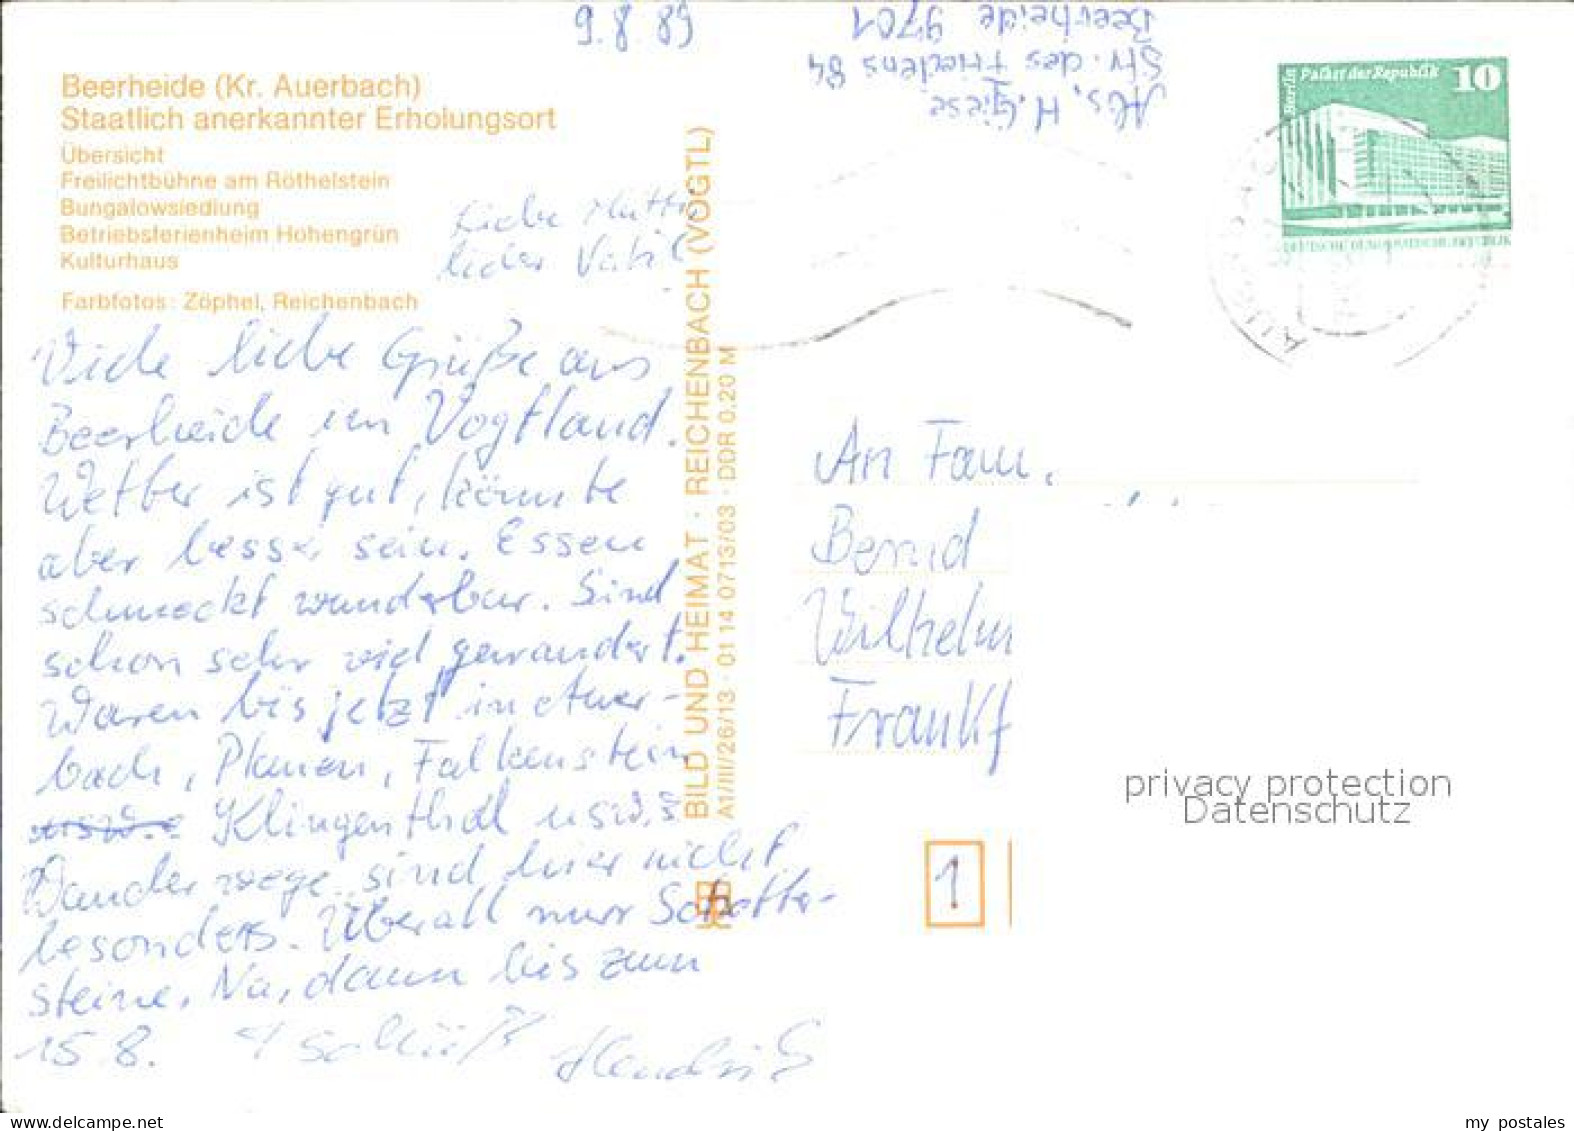 9.8.89
Abs. H. Giese
Str. des Friedens 84
Beerheide 9701
Beerheide (Kr. Auerbach)
Staatlich anerkannter Erholungsort
Übersicht
Freilichtbühne am Röthelstein
Bungalowsiedlung
Betriebsferienheim Hohengrün
Kulturhaus
Farbfotos: Zöphel, Reichenbach
Liebe Mutti
lieber Vati!
Viele liebe Grüße aus
Beerheide im Vogtland.
Wetter ist gut, könnte
aber besser sein. Essen
schmeckt wunderbar. Sind
schon sehr viel gewandert.
Waren bis jetzt in Auer-
bach, Plauen, Falkenstein,
usw. Klingenthal usw.
Wanderwege sind hier nicht
besonders. Überall nur Schotter-
steine. Na, dann bis zum
15.8. Tschüß Hendrik
BILD UND HEIMAT · REICHENBACH (VOGTL)
A1/III/26/13 · 01 14 0713/03 · DDR 0,20 M
Berlin Palast der Republik 10
DEUTSCHE DEMOKRATISCHE REPUBLIK
An Fam.
Bernd
Wilhelm
Frankf
1
privacy protection
Datenschutz
my postales